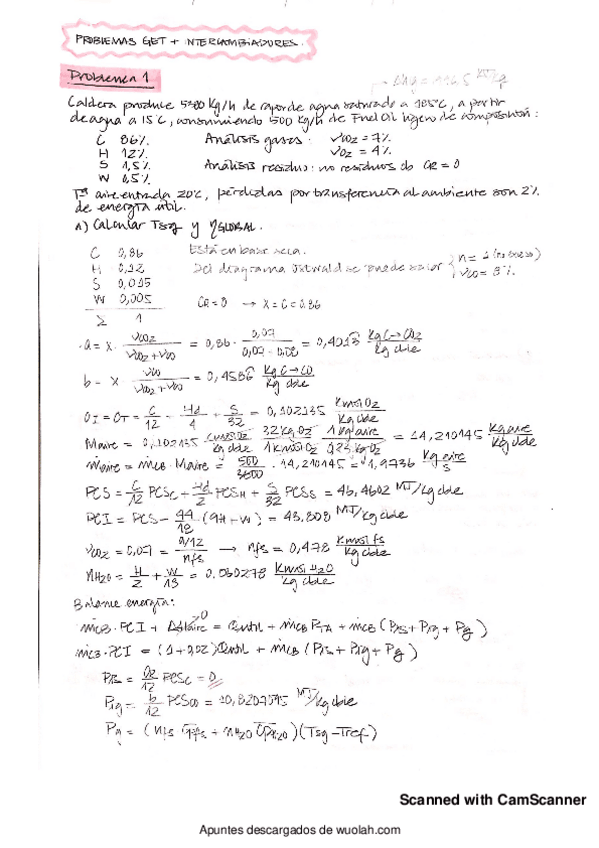 PROBLEMAS GET + INTERCAMBIADORES.
Problema 1
Caldera produce 5300 Kg/h de vapor de agua saturado a 185°C, a partir
de agua a 15°C, consumiendo 500 Kg/h de Fuel Oil ligero de composición:
C 86% Análisis gases: νco2 = 7%
H 12% νo2 = 4%
S 1,5% Análisis residuo: no residuos CR = 0
W 0,5%
Tª aire entrada 20°C, pérdidas por transferencia al ambiente son 2%
de energía útil.
A) Calcular Tsg y ηGLOBAL.
C 0,86 Está en base seca.
H 0,12 Del diagrama Ostwald se puede sacar
S 0,015 νco = 8%
W 0,005 CR = 0 → X = C = 0.86
Σ 1
a = X · νco2 / (νco2 + νco) = 0,86 · 0,07 / (0,07 - 0,08) = 0,4013 Kg C→CO2 / Kg cble
b = X νco / (νco2 + νco) = 0,4586 Kg C→CO / Kg cble
OI = OT = C/12 + Hd/4 + S/32 = 0,102135 KmolO2 / Kg cble
Maire = 0,102135 KmolO2 / Kg cble 32 Kg O2 / 1 KmolO2 1 Kg aire / 0,23 Kg O2 = 14,210145 Kg aire / Kg cble
ṁaire = ṁcB · Maire = 500/3600 · 14,210145 = 1,9736 Kg aire / s
PCS = C/12 PCSc + Hd/2 PCSH + S/32 PCSs = 46,4602 MJ/Kg cble
PCI = PCS - 44/18 (9H + W) = 43.808 MJ/Kg cble
νco2 = 0,07 = a/12 / nfs → nfs = 0,478 Kmol fs / Kg cble
nH2O = H/2 + W/18 = 0.060278 Kmol H2O / Kg cble
Balance energía:
ṁcB · PCI + ΔHaire = Qutil + ṁcB PTA + ṁcB (PRS + PIg + Pg)
ṁcB · PCI = (1 + 0,02) Qutil + ṁcB (PRS + PIg + Pg)
PRS = CR/12 PCSc = 0
PIg = b/12 PCSco = 10,8207595 MJ/Kg cble
Pg = (nfs C̄pfs + nH2O C̄pH2O)(Tsg - Tref)
Scanned with CamScanner
Apuntes descargados de wuolah.com